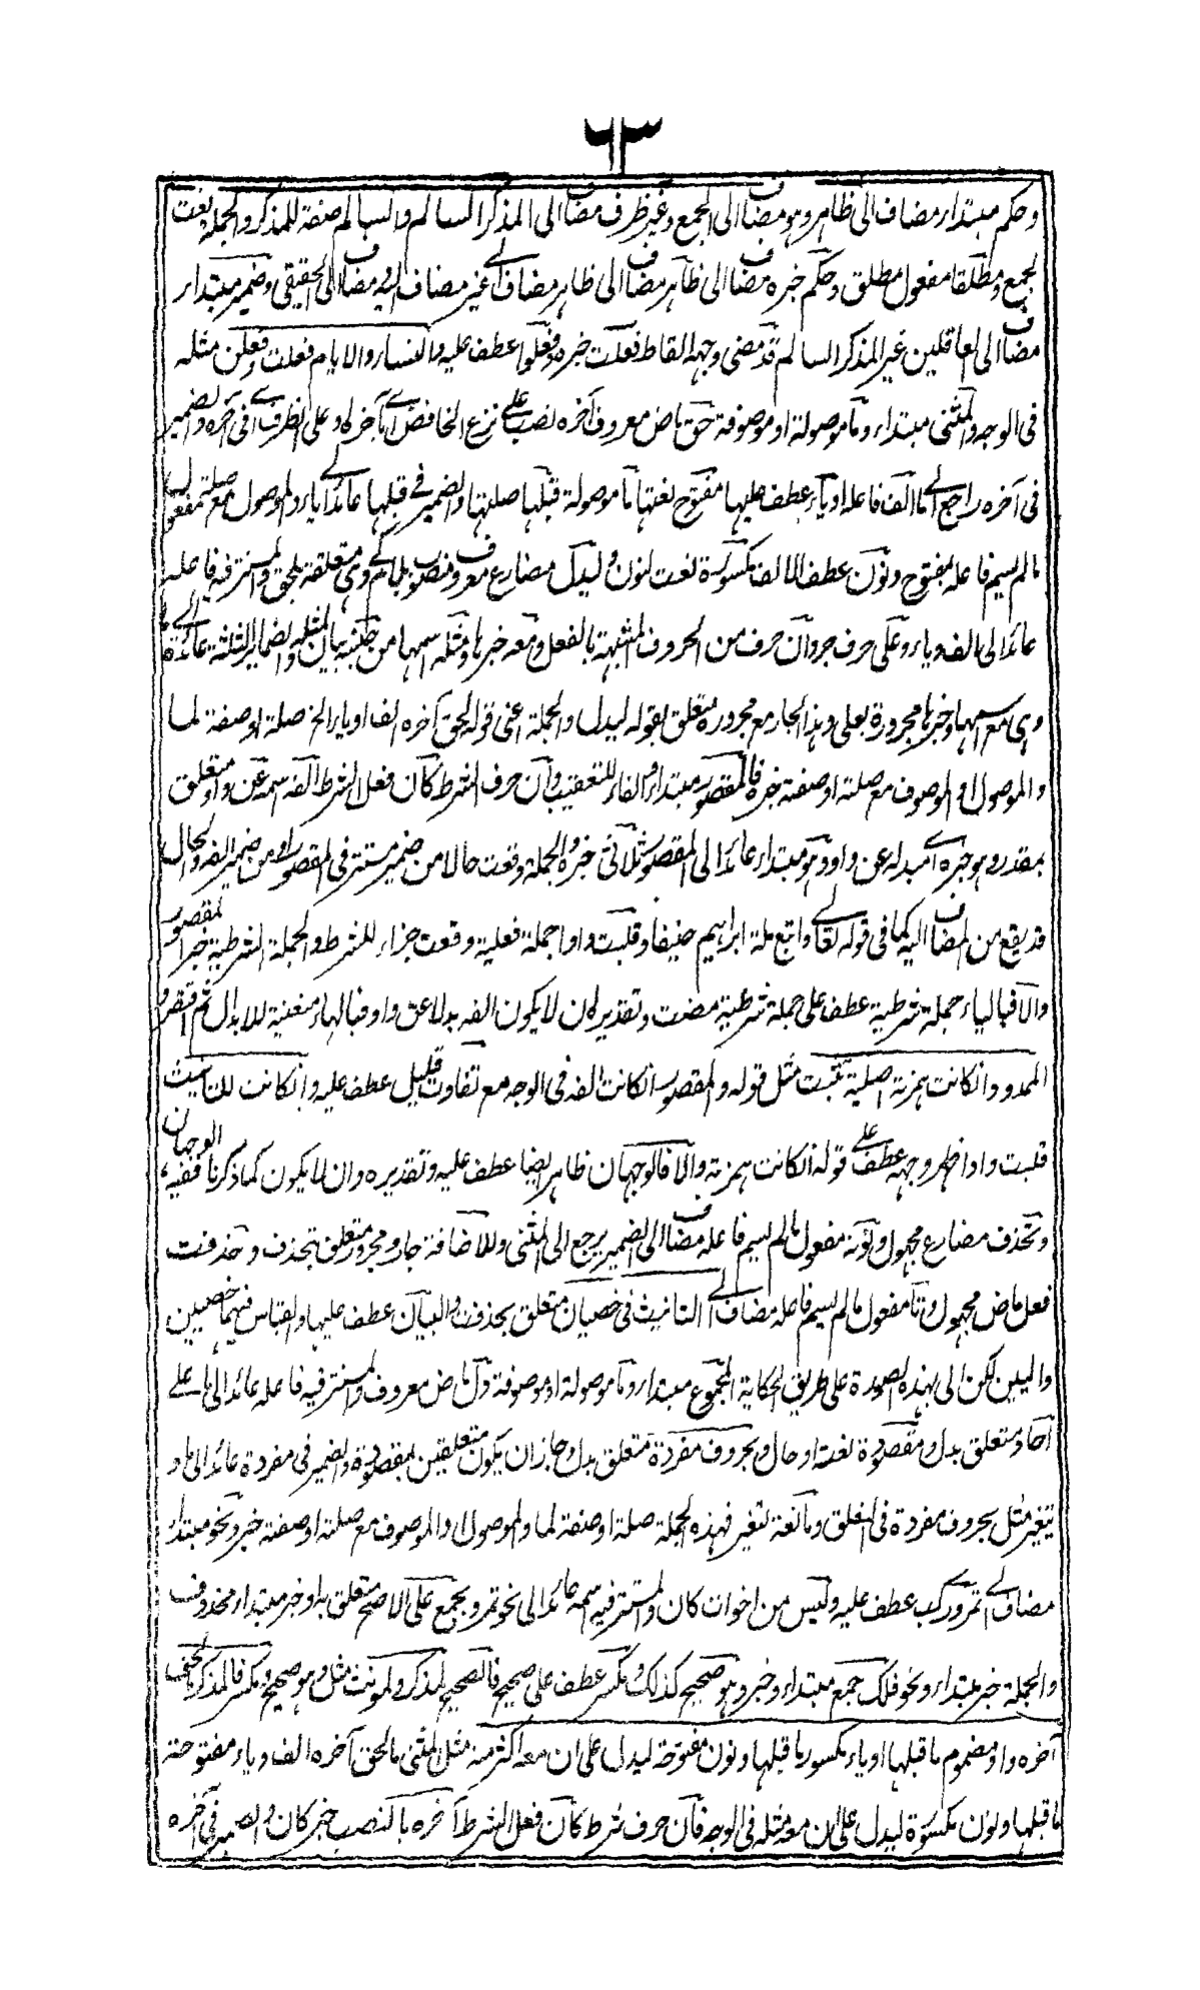 ٦٣
وحكم مبتدأ مضاف الى ظاهر وهو مضاف الى الجمع وغير ظرف مضاف الى المذكر السالم والسالم صفة للمذكر والجملة نعت
الجمع ومطلقا مفعول مطلق وحكم خبره مضاف الى ظاهر مضاف الى ظاهر مضاف الى غير مضاف اليه مضاف الى الحقيقي وضمير مبتدار
مضاف الى العاقلين غير المذكر السالم قد مضى وجهه القاط فعلت خبره وفعلوا عطف عليه والنسار والايام فعلت وفعلن مثله
فى الوجه والمثنى مبتداء وما موصولة او موصوفة لحق ماض معروف آخره نصب على نزع الخافض اى بآخره او على الظرف اى فى آخره والضمير
فى آخره راجع الى ما الف فاعله او ياء عطف عليها مفتوح نعتها ما موصولة قبلها صلتها والضمير فى قبلها عائد الى ياء والموصول مع صلته مفعول
مالم يسم فاعله مفتوح ونون عطف على الالف مكسورة نعت لنون وليدل مضارع معروف منصوب بلام كى وهى متعلقة بلحق والمستتر فيه فاعله
عائد الى الف وياء وعلى حرف جر وان حرف من الحروف المشبهة بالفعل ومعه خبرها ومثله اسمها من جنسه بيان لمثله والضمائر الثلثة عائدة الى ما
وهى مع اسمها وخبرها مجرورة بعلى وهذا الجار مع مجروره متعلق بقوله ليدل والجملة اعنى قوله لحق آخره الف او ياء الخ صلة او صفة لما
والموصول او الموصوف مع صلته او صفته خبره فالمقصور مبتداء والفاء للتعقيب وان حرف الشرط كان فعل الشرط الفه اسمه عن واو متعلق
بمقدر وهو خبره اى مبدلة عن واو وهو مبتداء عائد الى المقصور ثلاثى خبره والجملة وقعت حالا من ضمير مستتر فى المقصور او من ضمير الفه والحال
قد يقع من المضاف اليه كما فى قوله تعالى واتبع ملة ابراهيم حنيفا وقلبت واوا جملة فعلية وقعت جزاء للشرط والجملة الشرطية خبر المقصور
والا فبالياء جملة شرطية عطف على جملة شرطية مضت وتقديره ان لا يكون الفه بدلا عن واو فبالياء مغنية للابدال ثم اقتصر
الممدود وان كانت همزته اصلية تثبت مثل قوله والمقصور ان كانت الفه فى الوجه مع تفاوت قليل عطف عليه وان كانت للتانيث
قلبت واوا ظهر وجهه عطف على قوله ان كانت همزته والا فالوجهان ظاهر ايضا عطف عليه وتقديره وان لا يكون كما ذكرنا ففيه الوجهان
وتحذف مضارع مجهول ونونه مفعول مالم يسم فاعله مضاف الى الضمير يرجع الى المثنى وللاضافة جار ومجرور متعلق بتحذف وحذفت
فعل ماض مجهول وتا مفعول مالم يسم فاعله مضاف الى التانيث فى خصيان متعلق بحذفت واليان عطف عليها والقياس فيهما خصيين
واليين لكن اتى بهذه الصورة على طريق الحكاية المجموع مبتداء وما موصولة او موصوفة دل ماض معروف والمستتر فيه فاعله عائد الى ما على
آحاد متعلق بدل ومقصودة نعته او حال وبحروف مفردة متعلق بدل وجاز ان يكون متعلقين بمقصودة والضمير فى مفردة عائد الى ما و
بتغير مثل بحروف مفردة فى التعلق وما نعت لتغير فهذه الجملة صلة او صفة لما والموصول او الموصوف مع صلته او صفته خبر ونحو مبتداء
مضاف الى تمر وركب عطف عليه وليس من اخوات كان والمستتر فيه اسمه عائد الى نحو تمر وبجمع على الاصح متعلق به او خبر مبتداء محذوف
والجملة خبر مبتداء ونحو فلك جمع مبتداء وخبر وهو صحيح كذلك ومكسر عطف على صحيح فالصحيح لمذكر ولمونث مثل وهو صحيح ومكسر فالمذكر ما لحق
آخره واو مضموم ما قبلها او ياء مكسور ما قبلها ونون مفتوحة ليدل على ان معه اكثر منه مثل المثنى ما لحق آخره الف او ياء مفتوحة
ما قبلها ونون مكسورة ليدل على ان معه مثله فى الوجه فان حرف شرط كان فعل الشرط آخره بالنصب خبر كان والضمير فى آخره